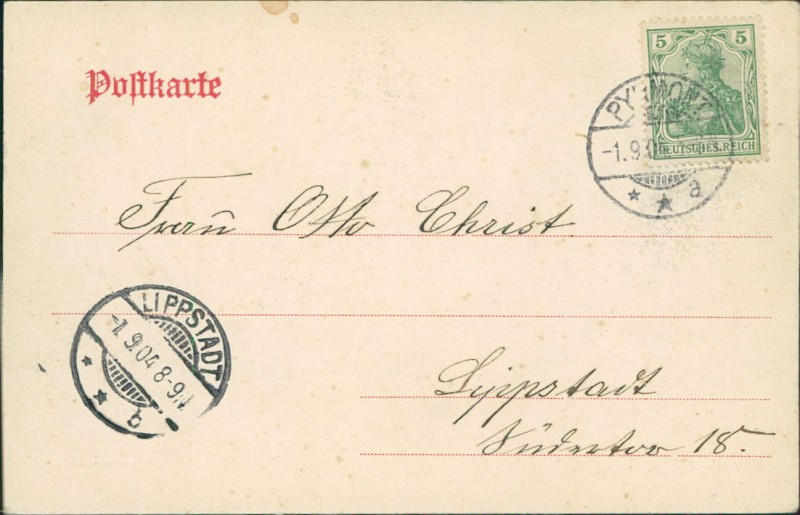 Postkarte
5 5
DEUTSCHES REICH
PYRMONT
-1.9.04
a
Frau Otto Christ
LIPPSTADT
-1.9.04 8-9N.
b
Lippstadt
Südertor 18.